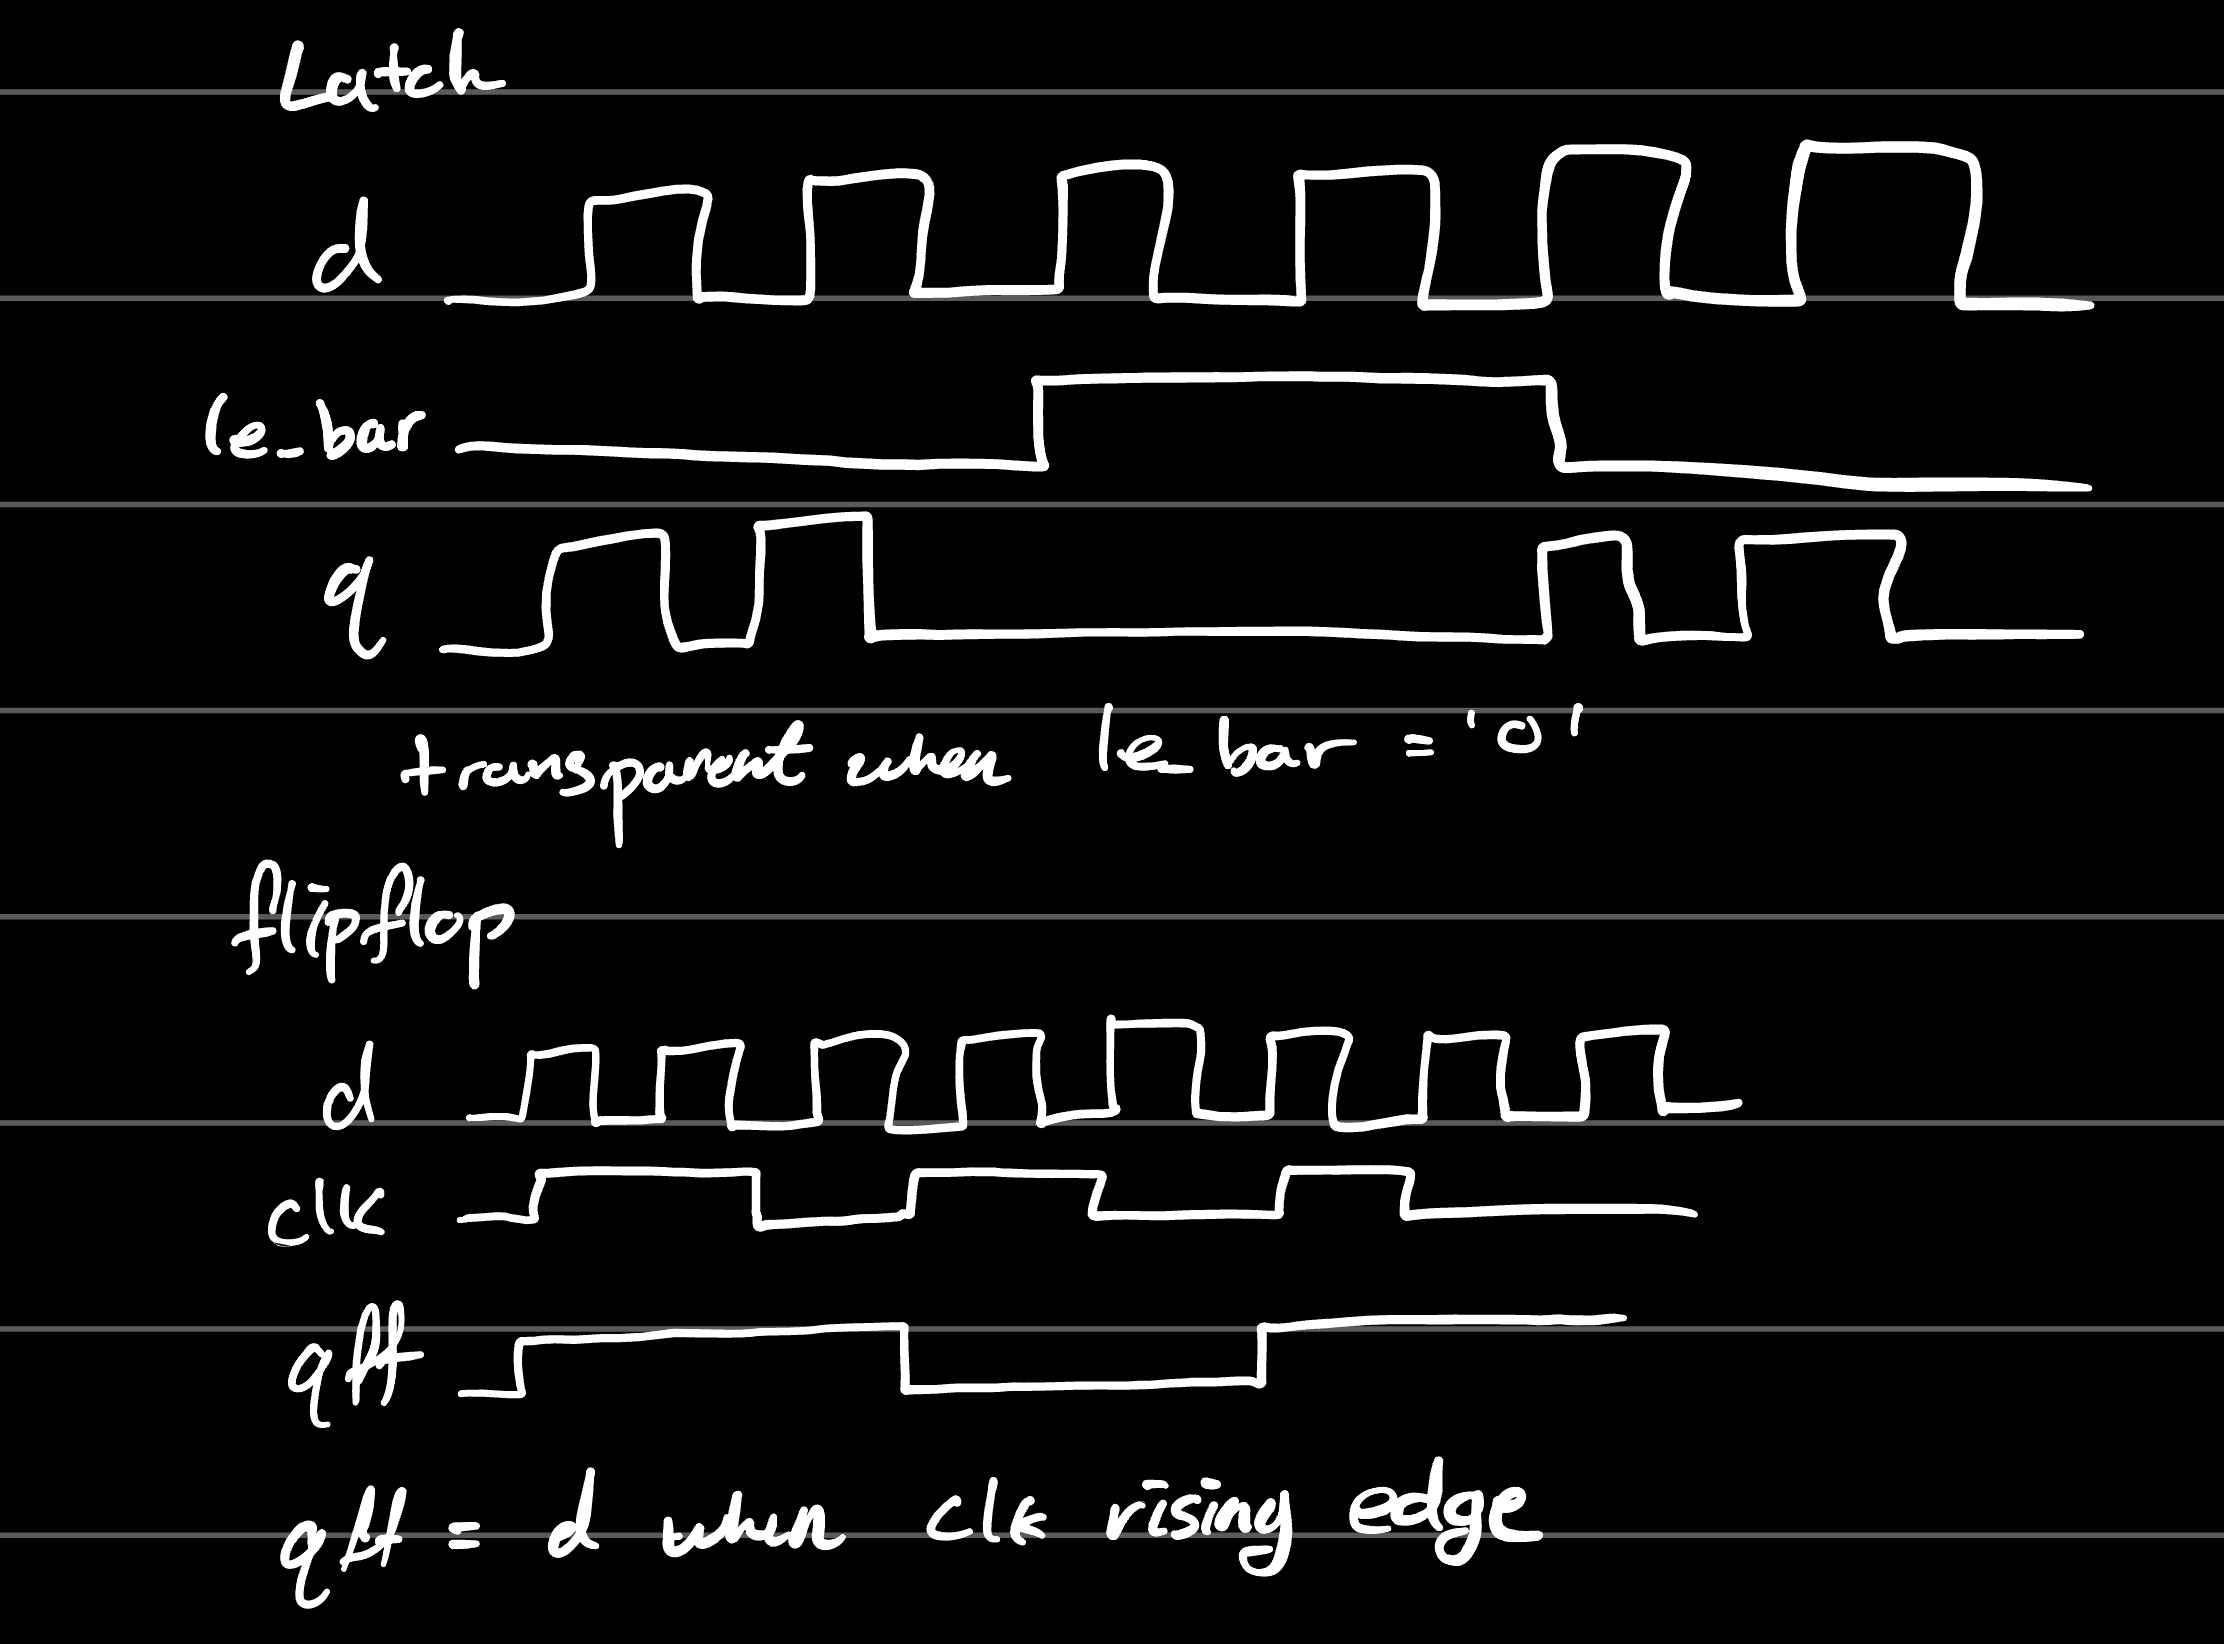 Latch
d
le_bar
q
transparent when le_bar = '0'
flipflop
d
clk
qff
qff = d when clk rising edge